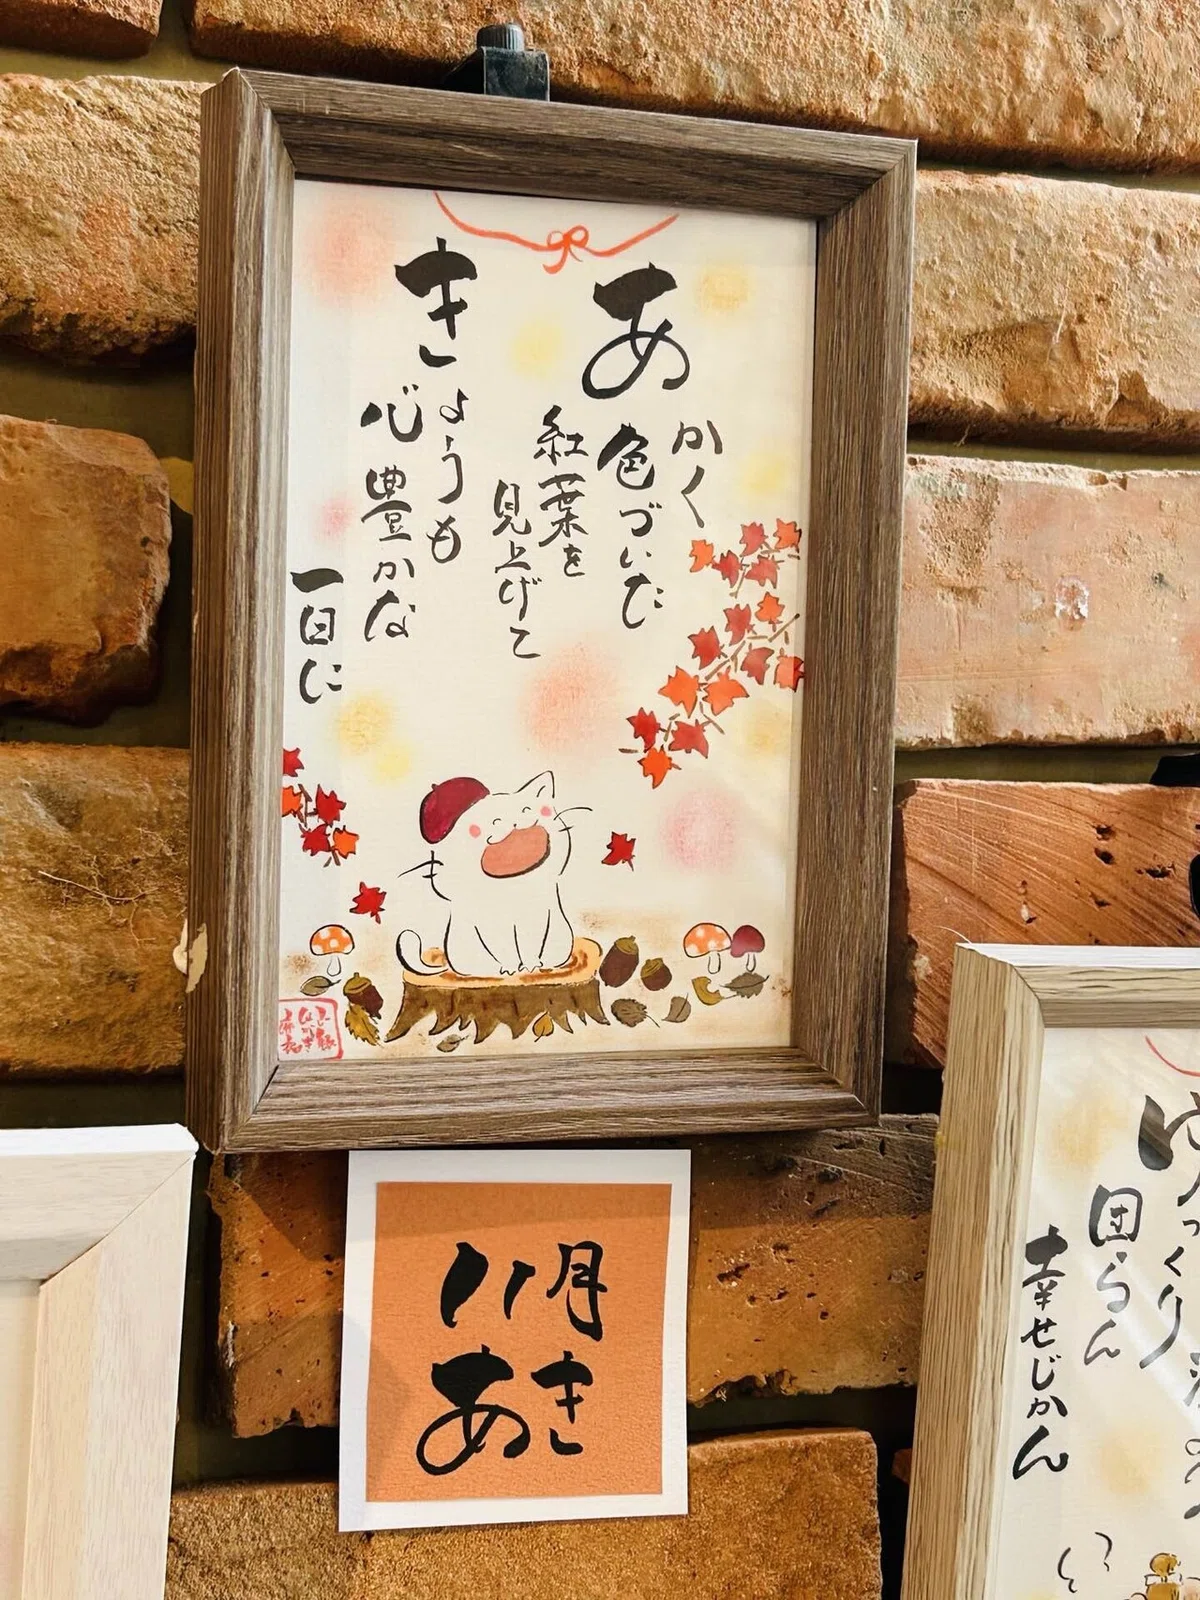 あかく
色づいた
紅葉を
見上げて
きょうも
心豊かな
一日に
11月
あき
団らん
幸せじかん